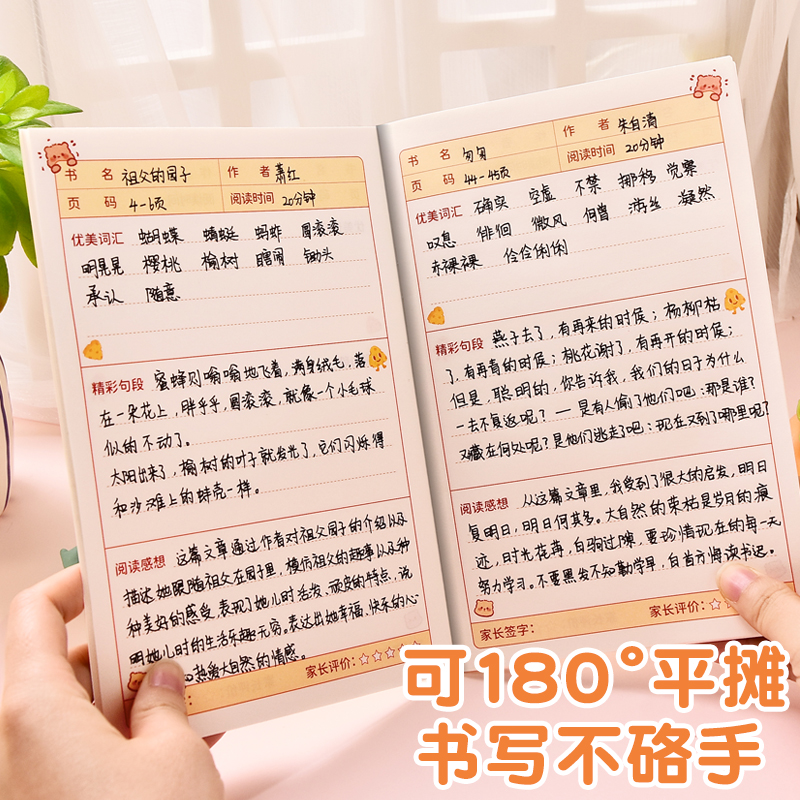 书 名 祖父的园子 作 者 萧红
页 码 4-6页 阅读时间 20分钟
优美词汇 蝴蝶 蜻蜓 蚂蚱 圆滚滚
明晃晃 樱桃 榆树 瞎闹 锄头
承认 随意
精彩句段 蜜蜂则嗡嗡地飞着,满身绒毛,落
在一朵花上,胖乎乎,圆滚滚,就像一个小毛球
似的不动了。
太阳出来了,榆树的叶子就发光了,它们闪烁得
和沙滩上的蚌壳一样。
阅读感想 这篇文章通过作者对祖父园子的介绍以及
描述她跟随祖父在园子里,模仿祖父的趣事以及种
种美好的感受,表现了她儿时活发、顽皮的特点,说
明她儿时的生活乐趣无穷。表达出她幸福、快乐的心
和热爱大自然的情感。
家长评价:
书 名 匆匆 作 者 朱自清
页 码 44-45页 阅读时间 20分钟
优美词汇 确实 空虚 不禁 挪移 觉察
叹息 徘徊 微风 何曾 游丝 凝然
赤裸裸 伶伶俐俐
精彩句段 燕子去了,有再来的时候;杨柳枯
了,有再青的时候;桃花谢了,有再开的时候;
但是,聪明的,你告诉我,我们的日子为什么
一去不复返呢?—是有人偷了他们吧:那是谁?
又藏在何处呢?是他们逃走了吧:现在又到了哪里呢?
阅读感想 从这篇文章里,我受到了很大的启发,明日
复明日,明日何其多。大自然的荣枯是岁月的痕
迹,时光荏苒,白驹过隙,要珍惜现在的每一天
努力学习。不要黑发不知勤学早,白首方悔读书迟。
家长签字: 家长评价:
可180°平摊
书写不硌手